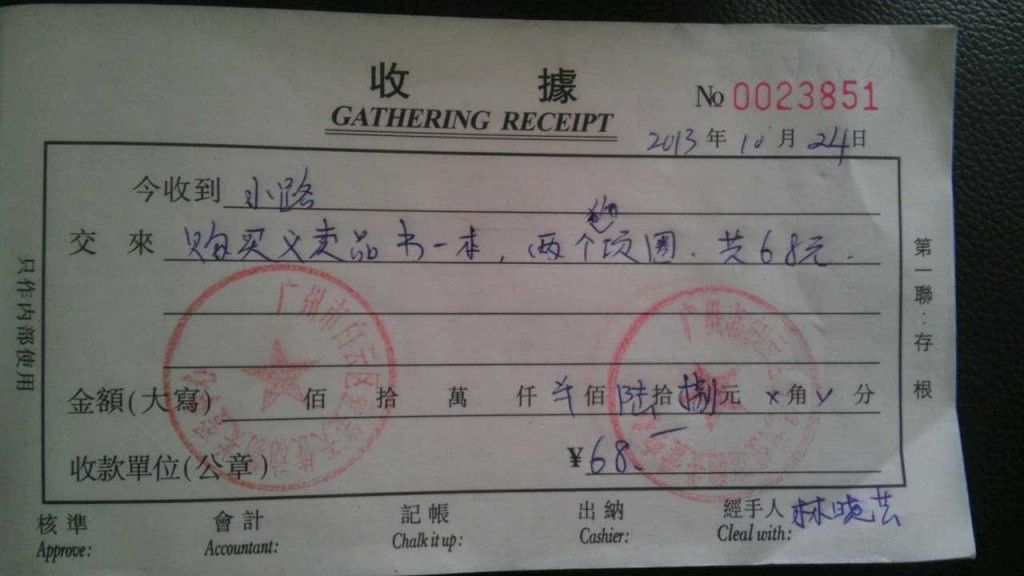 收 據
GATHERING RECEIPT
No 0023851
2013 年 10 月 24 日
今收到 小路
交 來 购买义卖品书一本，两个狗项圈．共68元．
金額(大寫) 佰 拾 萬 仟 佰 陆 拾 捌 元 x 角 分
收款單位(公章)
¥ 68.
核 準
Approve:
會 計
Accountant:
記 帳
Chalk it up:
出 納
Cashier:
經手人 林晓芸
Cleal with:
只作内部使用
第一聯：存 根
广州市白云区
广州市